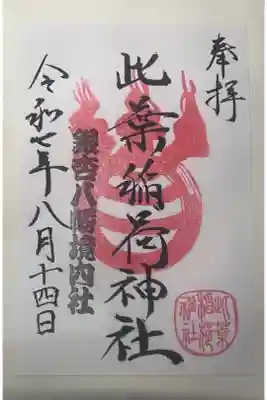 奉拝
此葉稲荷神社
銀杏八幡境内社
令和七年八月十四日
此葉稲荷神社